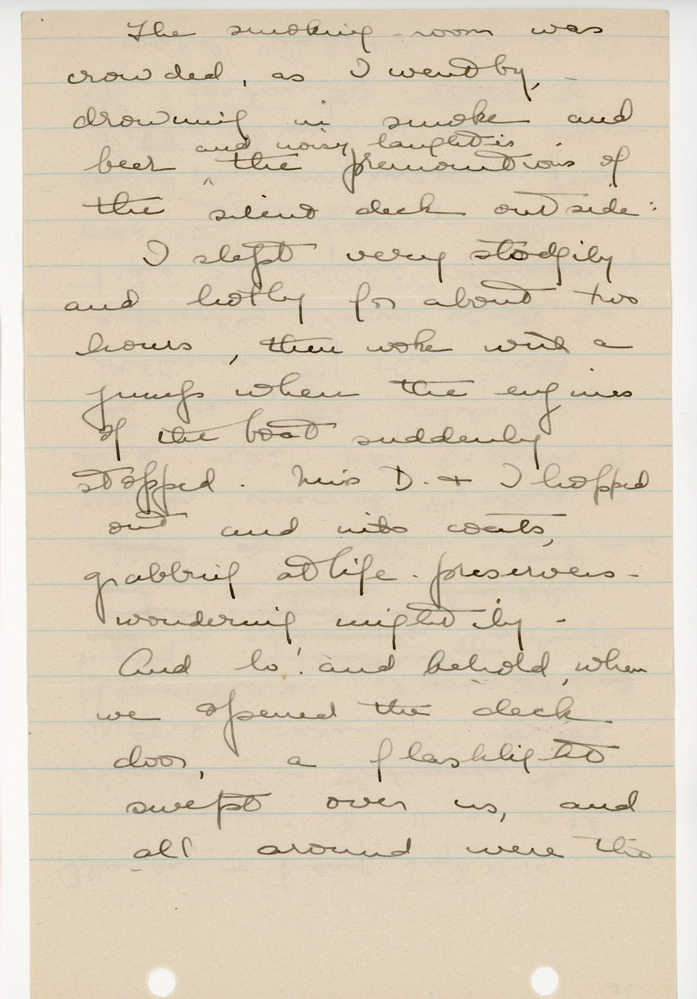 The smoking-room was
crowded, as I went by, -
drowning in smoke and
and noisy laughter
beer the premonitions of
the silent deck outside:
I slept very stodgily
and hotly for about two
hours, then woke with a
jump when the engines
of the boat suddenly
stopped. Miss D. + I hopped
out and into coats,
grabbing at life-preservers -
wondering mightily -
And lo! and behold, when
we opened the deck
door, a flashlight
swept over us, and
all around were the